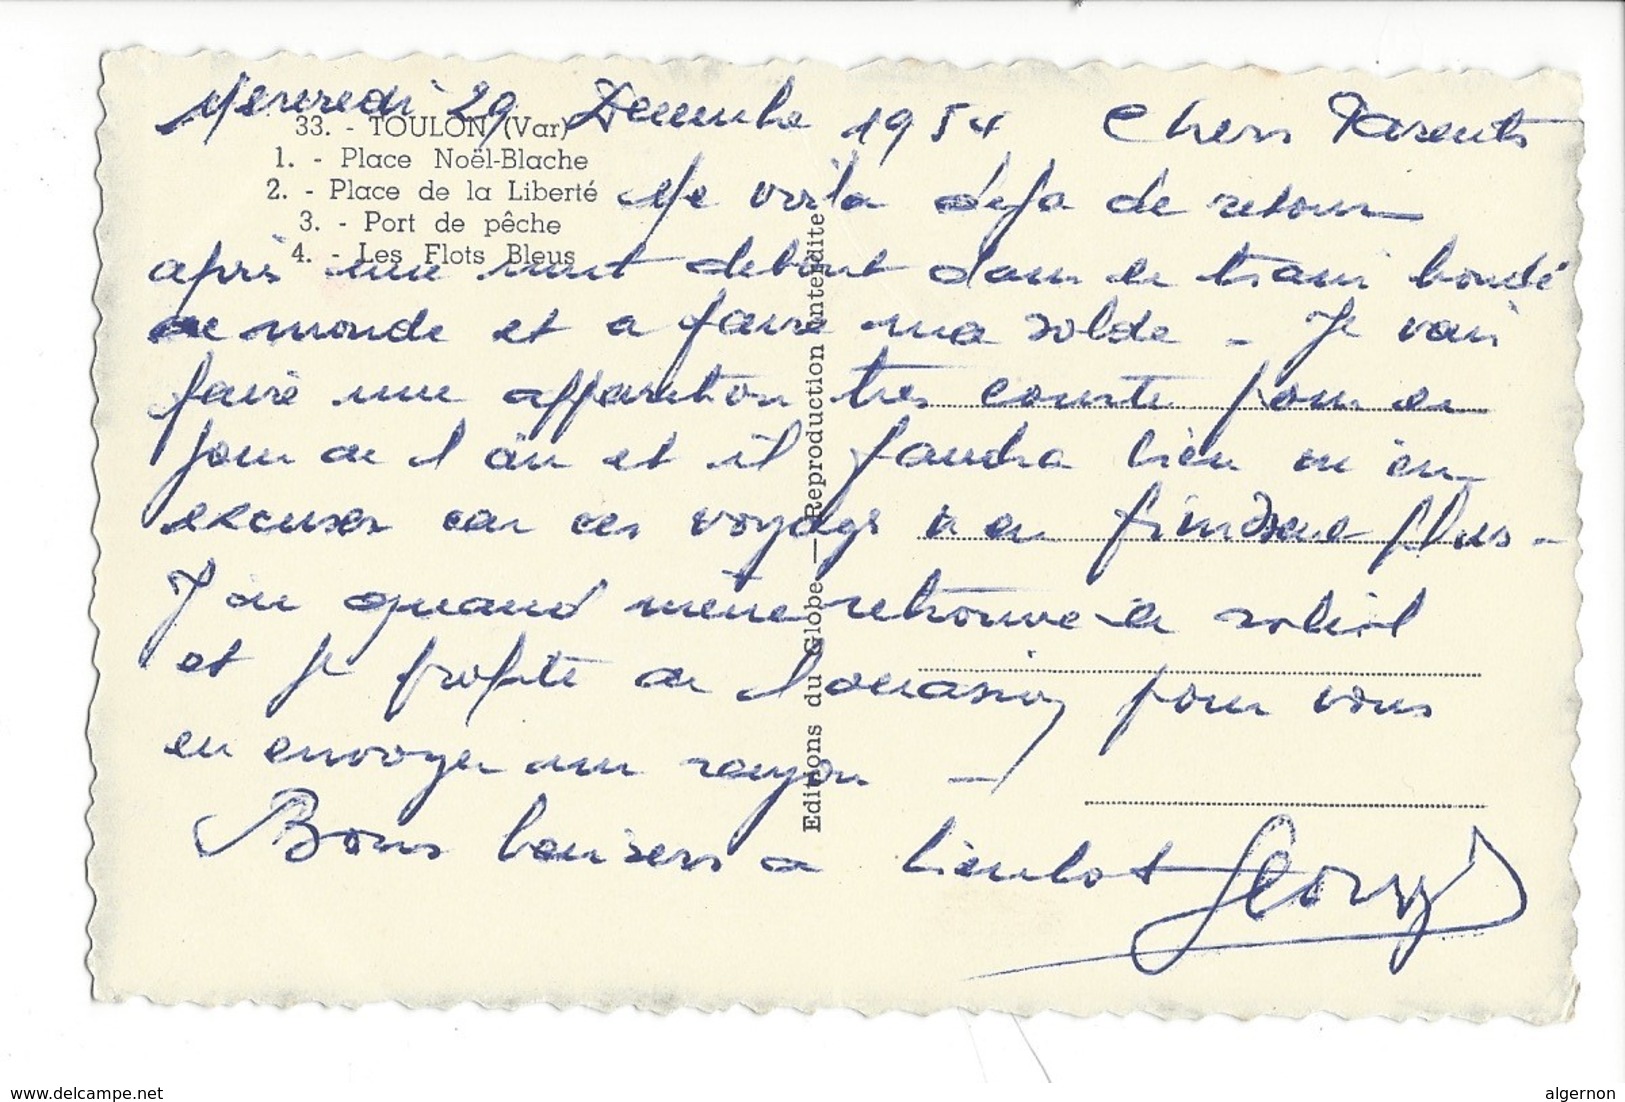 Mercredi 29 Decembre 1954 Chers Parents
33. - TOULON (Var)
1. - Place Noël-Blache
2. - Place de la Liberté
3. - Port de pêche
4. - Les Flots Bleus
Me voila deja de retour
apres une nuit debout dans le train bondé
de monde et a faire ma solde - Je vais
faire une apparition tres courte pour le
jour de l an et il faudra bien m en
excuser car ces voyages n en finissent plus -
J ai quand meme retrouve le soleil
et je profite de l occasion pour vous
en envoyer un rayon -
Bons baisers a bientot Georges
Editions du Globe - Reproduction interdite
www.delcampe.net
algernon